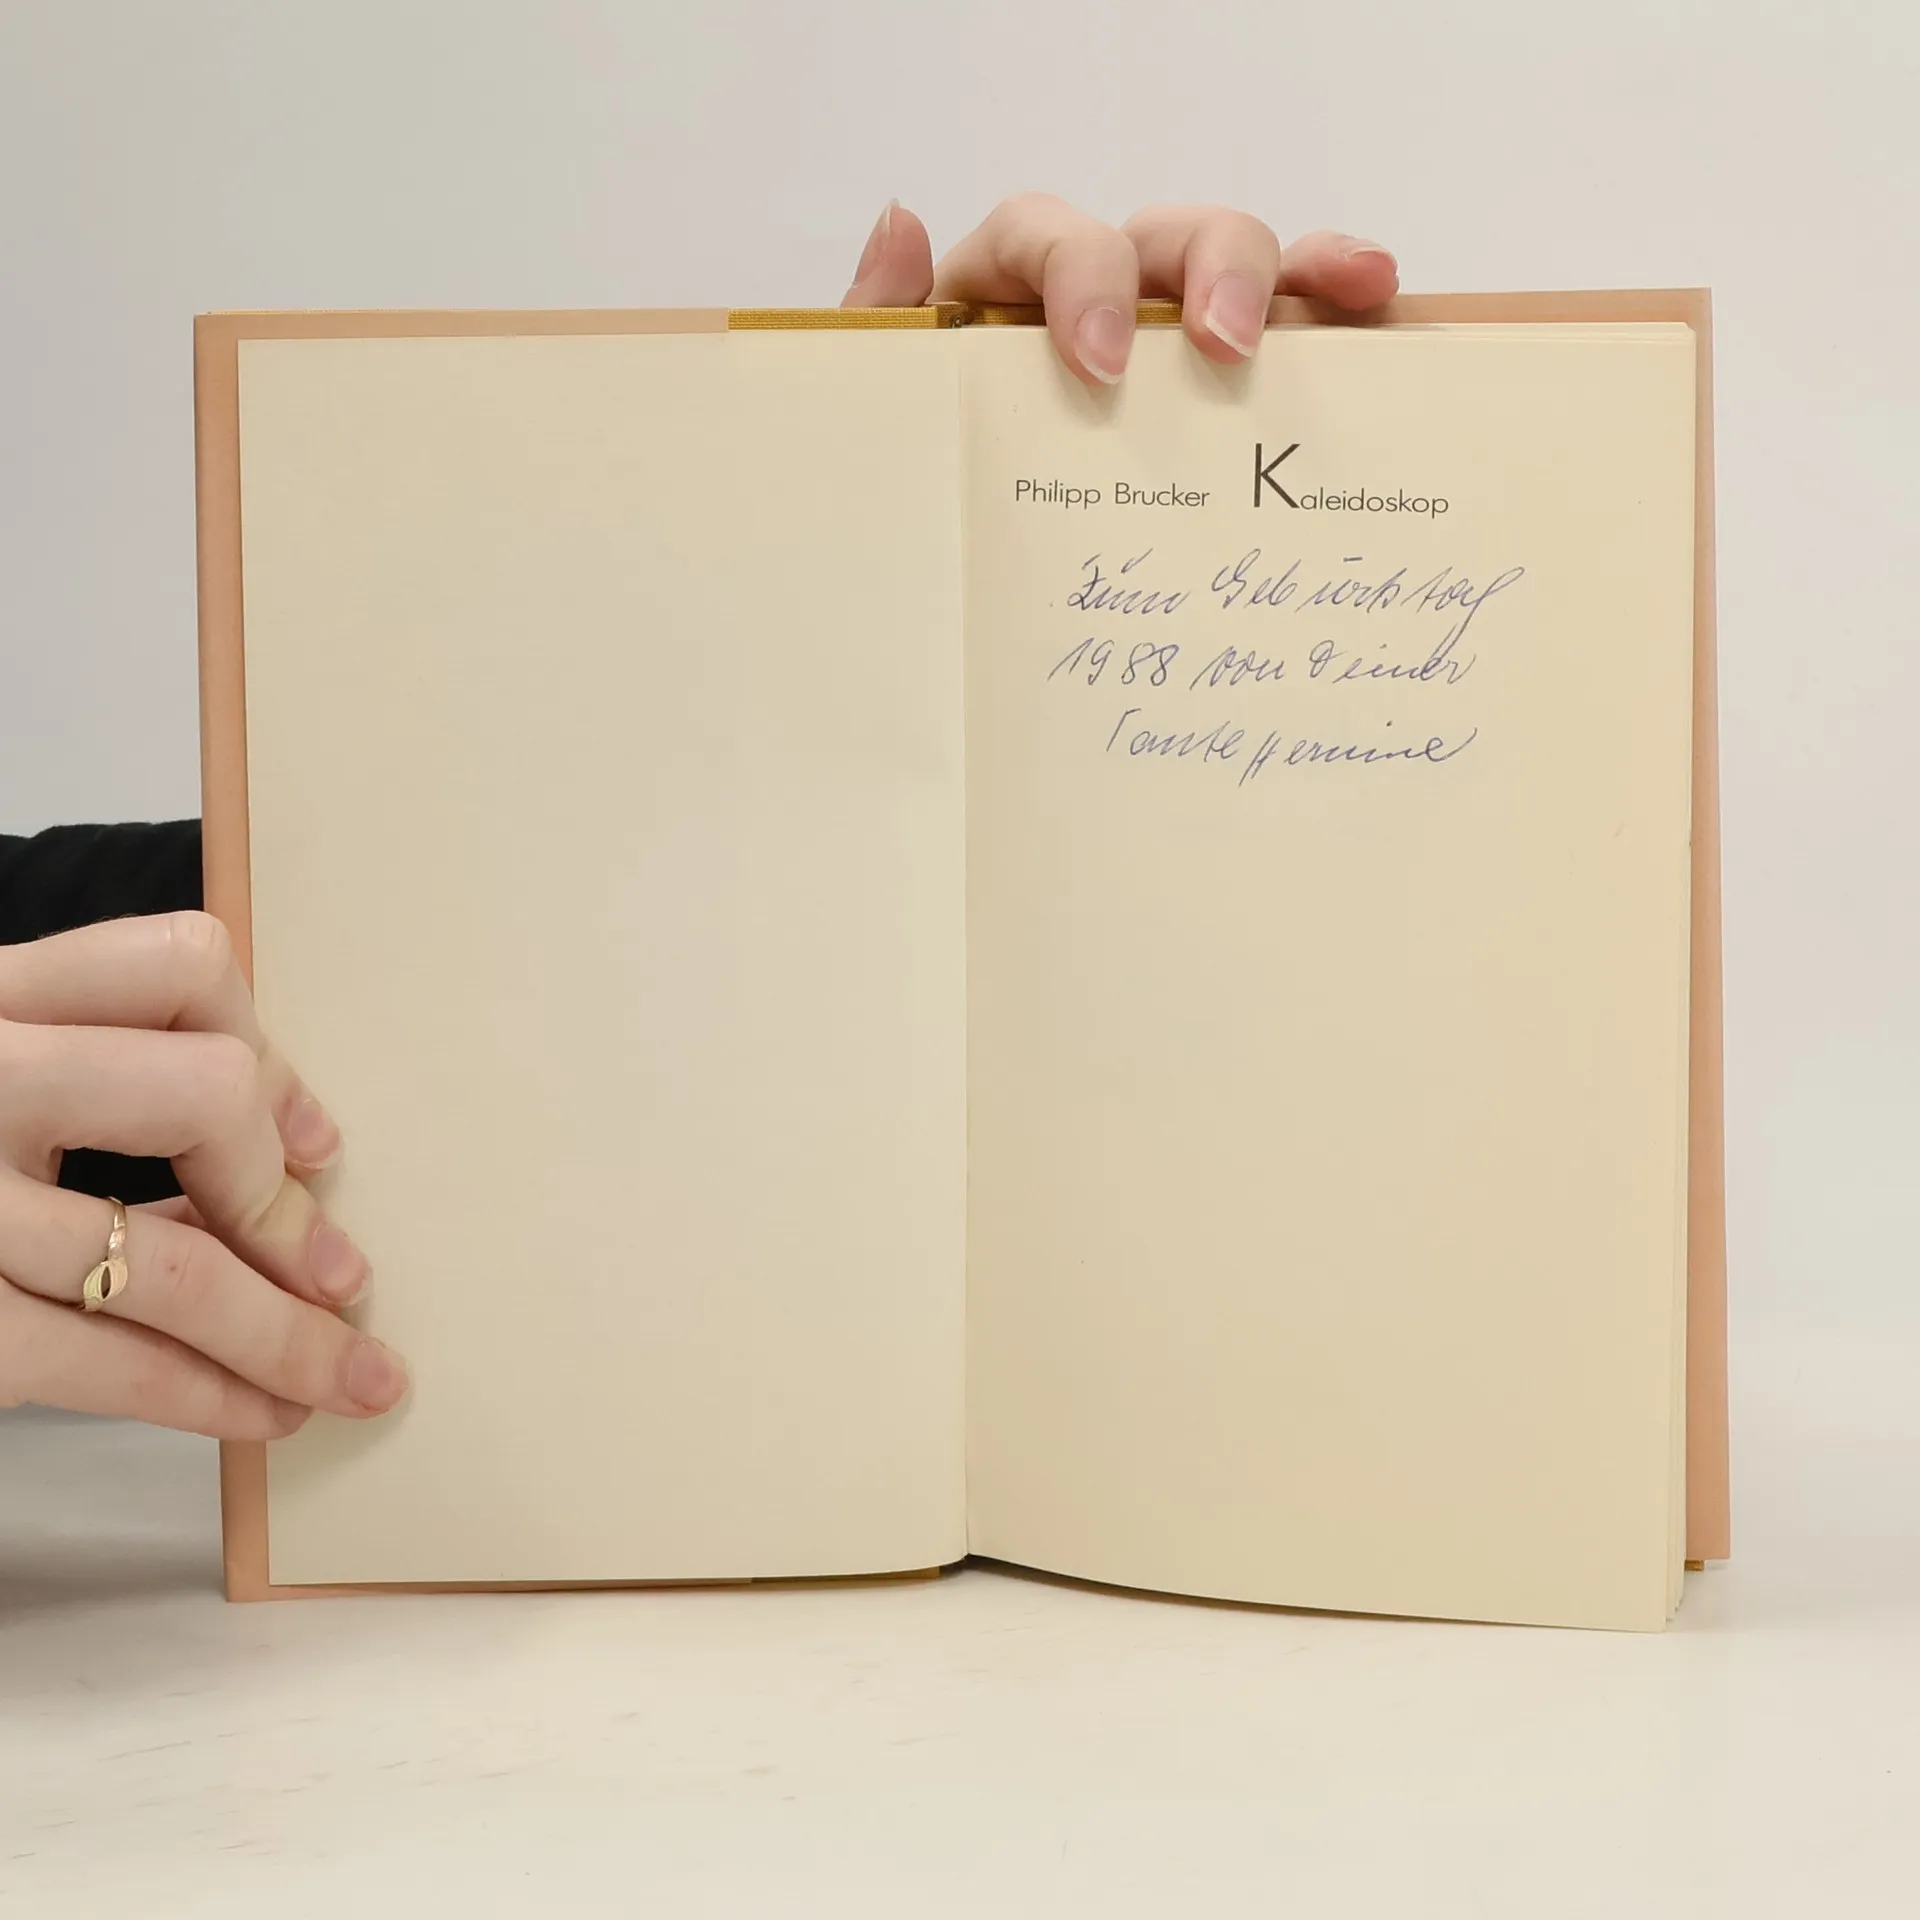 Philipp Brucker Kaleidoskop
Zum Geburtstag
1988 von Deiner
Tante Hermine